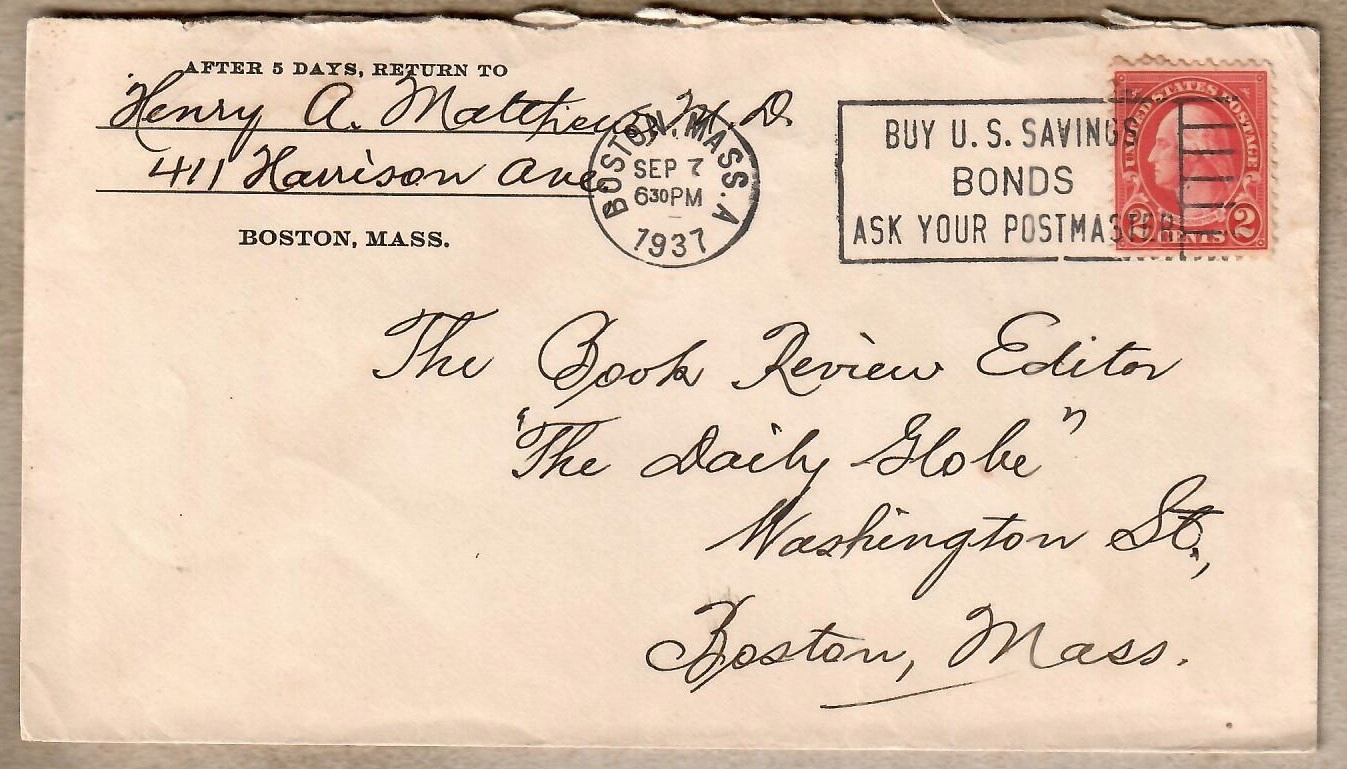 AFTER 5 DAYS, RETURN TO
Henry A. Matthews, M.D.
411 Harrison Ave
BOSTON, MASS.
BOSTON, MASS. A
SEP 7
630PM
1937
BUY U.S. SAVINGS
BONDS
ASK YOUR POSTMASTER
UNITED STATES POSTAGE
2 CENTS 2
The Book Review Editor
"The Daily Globe"
Washington St.,
Boston, Mass.